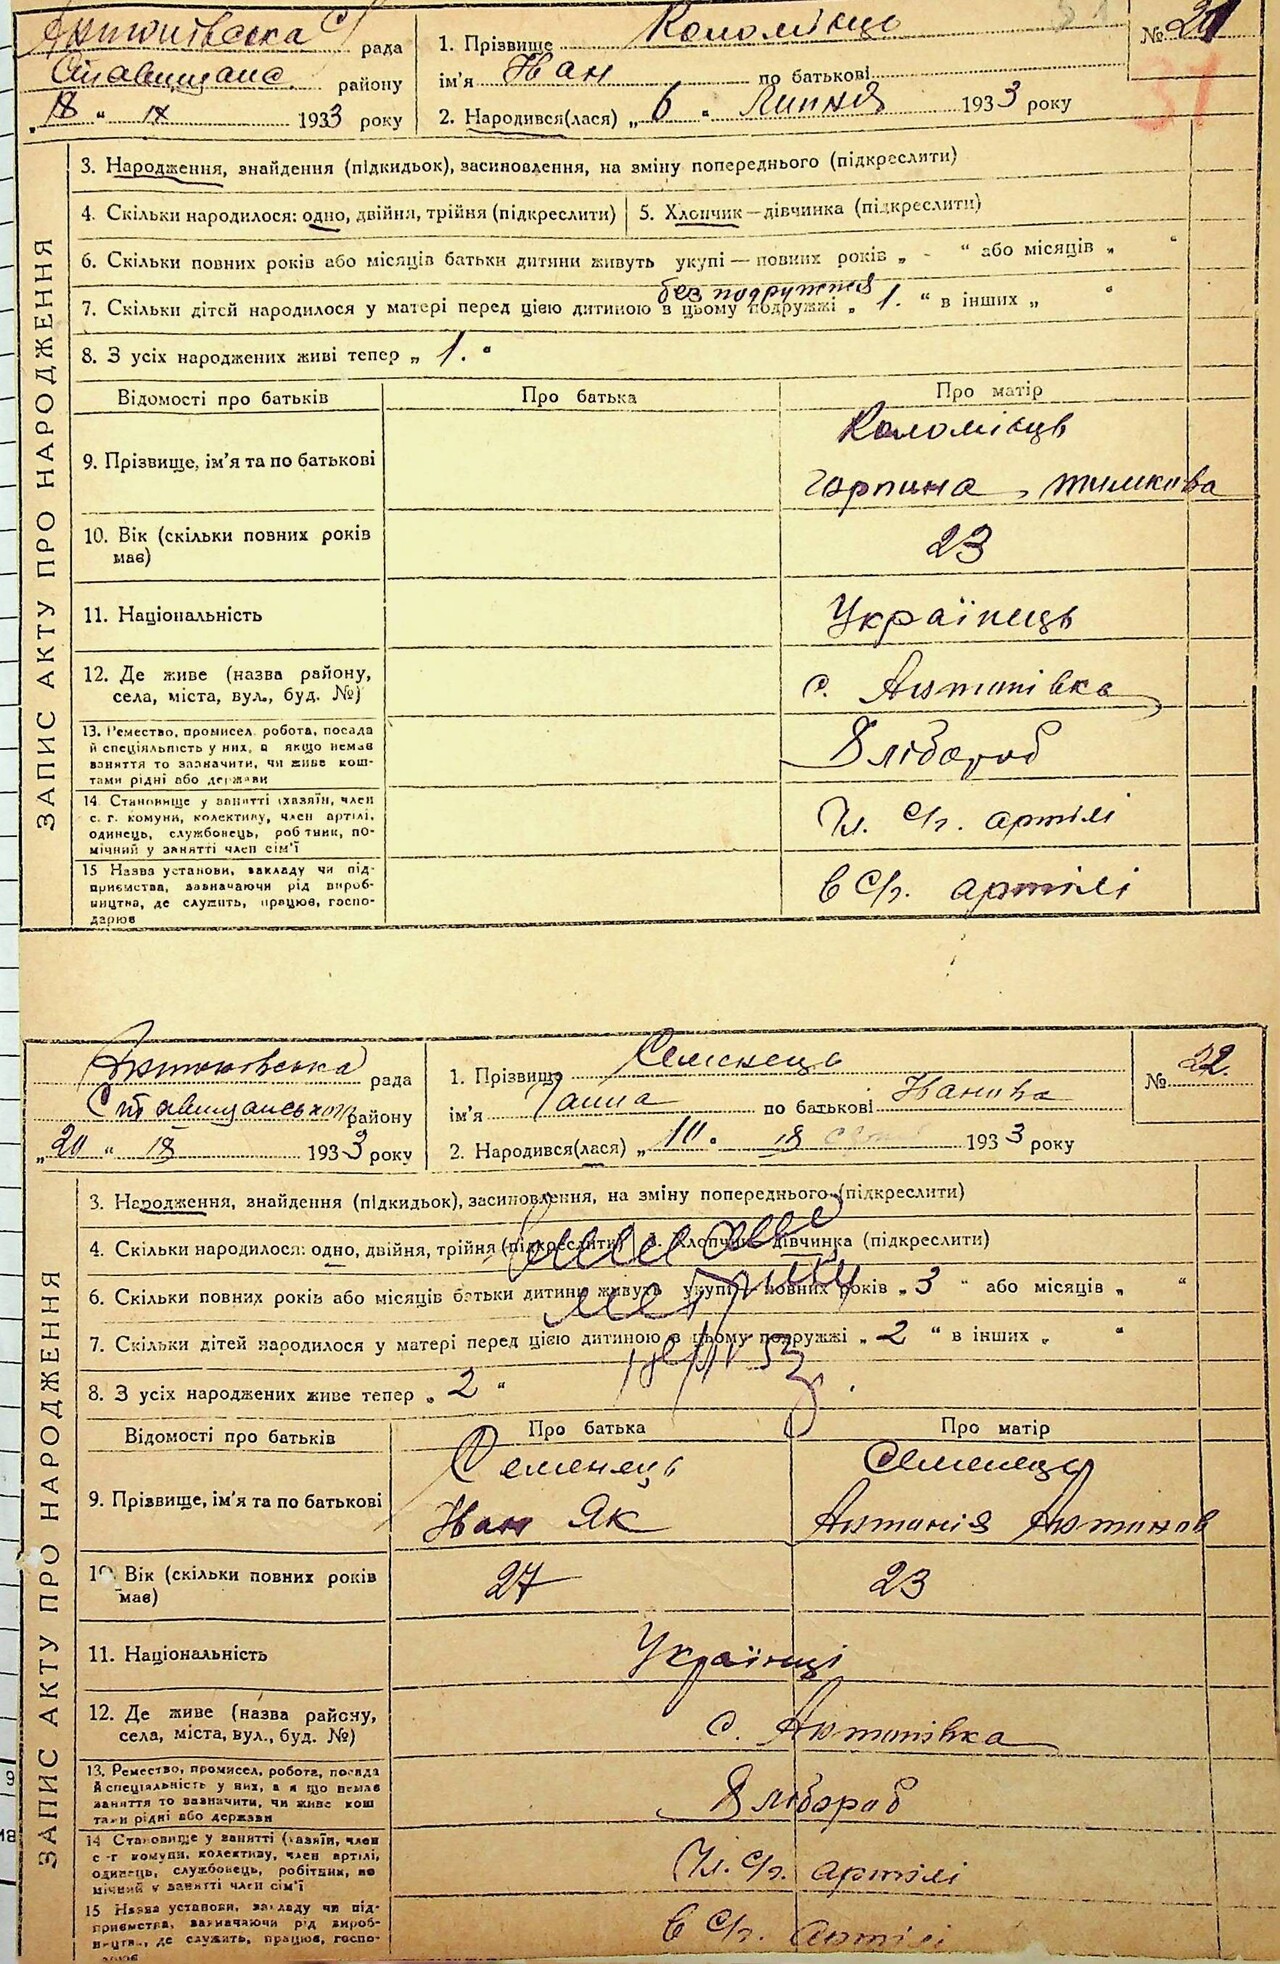 Антонівська с/ рада
Ставищанс. району
„18“ IX 1933 року
1. Прізвище Коломієць
ім'я Іван по батькові
2. Народився(лася) „6“ Липня 1933 року
№ 21
31
ЗАПИС АКТУ ПРО НАРОДЖЕННЯ
3. Народження, знайдення (підкидьок), засиновлення, на зміну попереднього (підкреслити)
4. Скільки народилося: одно, двійня, трійня (підкреслити) 5. Хлопчик—дівчинка (підкреслити)
6. Скільки повних років або місяців батьки дитини живуть укупі — повних років „ - “ або місяців „ “
без подружжя
7. Скільки дітей народилося у матері перед цією дитиною в цьому подружжі „ 1. “ в інших „ “
8. З усіх народжених живі тепер „ 1. “
Відомості про батьків Про батька Про матір
9. Прізвище, ім'я та по батькові Коломієць
Горпина Тимкова
10. Вік (скільки повних років має) 23
11. Національність Українець
12. Де живе (назва району, с. Антонівка
села, міста, вул., буд. №)
13. Ремество, промисел, робота, посада Хлібороб
й спеціяльність у них, а якщо немає
заняття то зазначити, чи живе кош-
тами рідні або держави
14. Становище у занятті (хазяїн, член Чл. С/г. артілі
с. г. комуни, колективу, член артілі,
одинець, службонець, робітник, по-
мічний у занятті член сім'ї
15 Назва установи, закладу чи під- в С/г. артілі
приємства, зазначаючи рід вироб-
ництва, де служить, працює, госпо-
дарює
Антонівська рада
Ставищанського району
„20“ IX 1933 року
1. Прізвище Семенець
ім'я Ганна по батькові Іванівна
2. Народився(лася) „10“ IX 1933 року
№ 22
ЗАПИС АКТУ ПРО НАРОДЖЕННЯ
3. Народження, знайдення (підкидьок), засиновлення, на зміну попереднього (підкреслити)
4. Скільки народилося: одно, двійня, трійня (підкреслити) 5. Хлопчик—дівчинка (підкреслити)
6. Скільки повних років або місяців батьки дитини живуть укупі — повних років „ 3 “ або місяців „ “
7. Скільки дітей народилося у матері перед цією дитиною в цьому подружжі „ 2 “ в інших „ “
8. З усіх народжених живе тепер „ 2 “
Відомості про батьків Про батька Про матір
9. Прізвище, ім'я та по батькові Семенець Семенець
Іван Як Антонія Антонов
10. Вік (скільки повних років має) 27 23
11. Національність Українці
12. Де живе (назва району, с. Антонівка
села, міста, вул., буд. №)
13. Ремество, промисел, робота, посада Хлібороб
й спеціяльність у них, а якщо немає
заняття то зазначити, чи живе кош
тами рідні або держави
14 Становище у занятті (хазяїн, член Чл. С/г. артілі
с-г комуни, колективу, член артілі,
одинець, службовець, робітник, по
мічний у занятті член сім'ї
15 Назва установи, закладу чи під- в С/г. артілі
приємства, зазначаючи рід вироб-
ництва, де служить, працює, госпо-